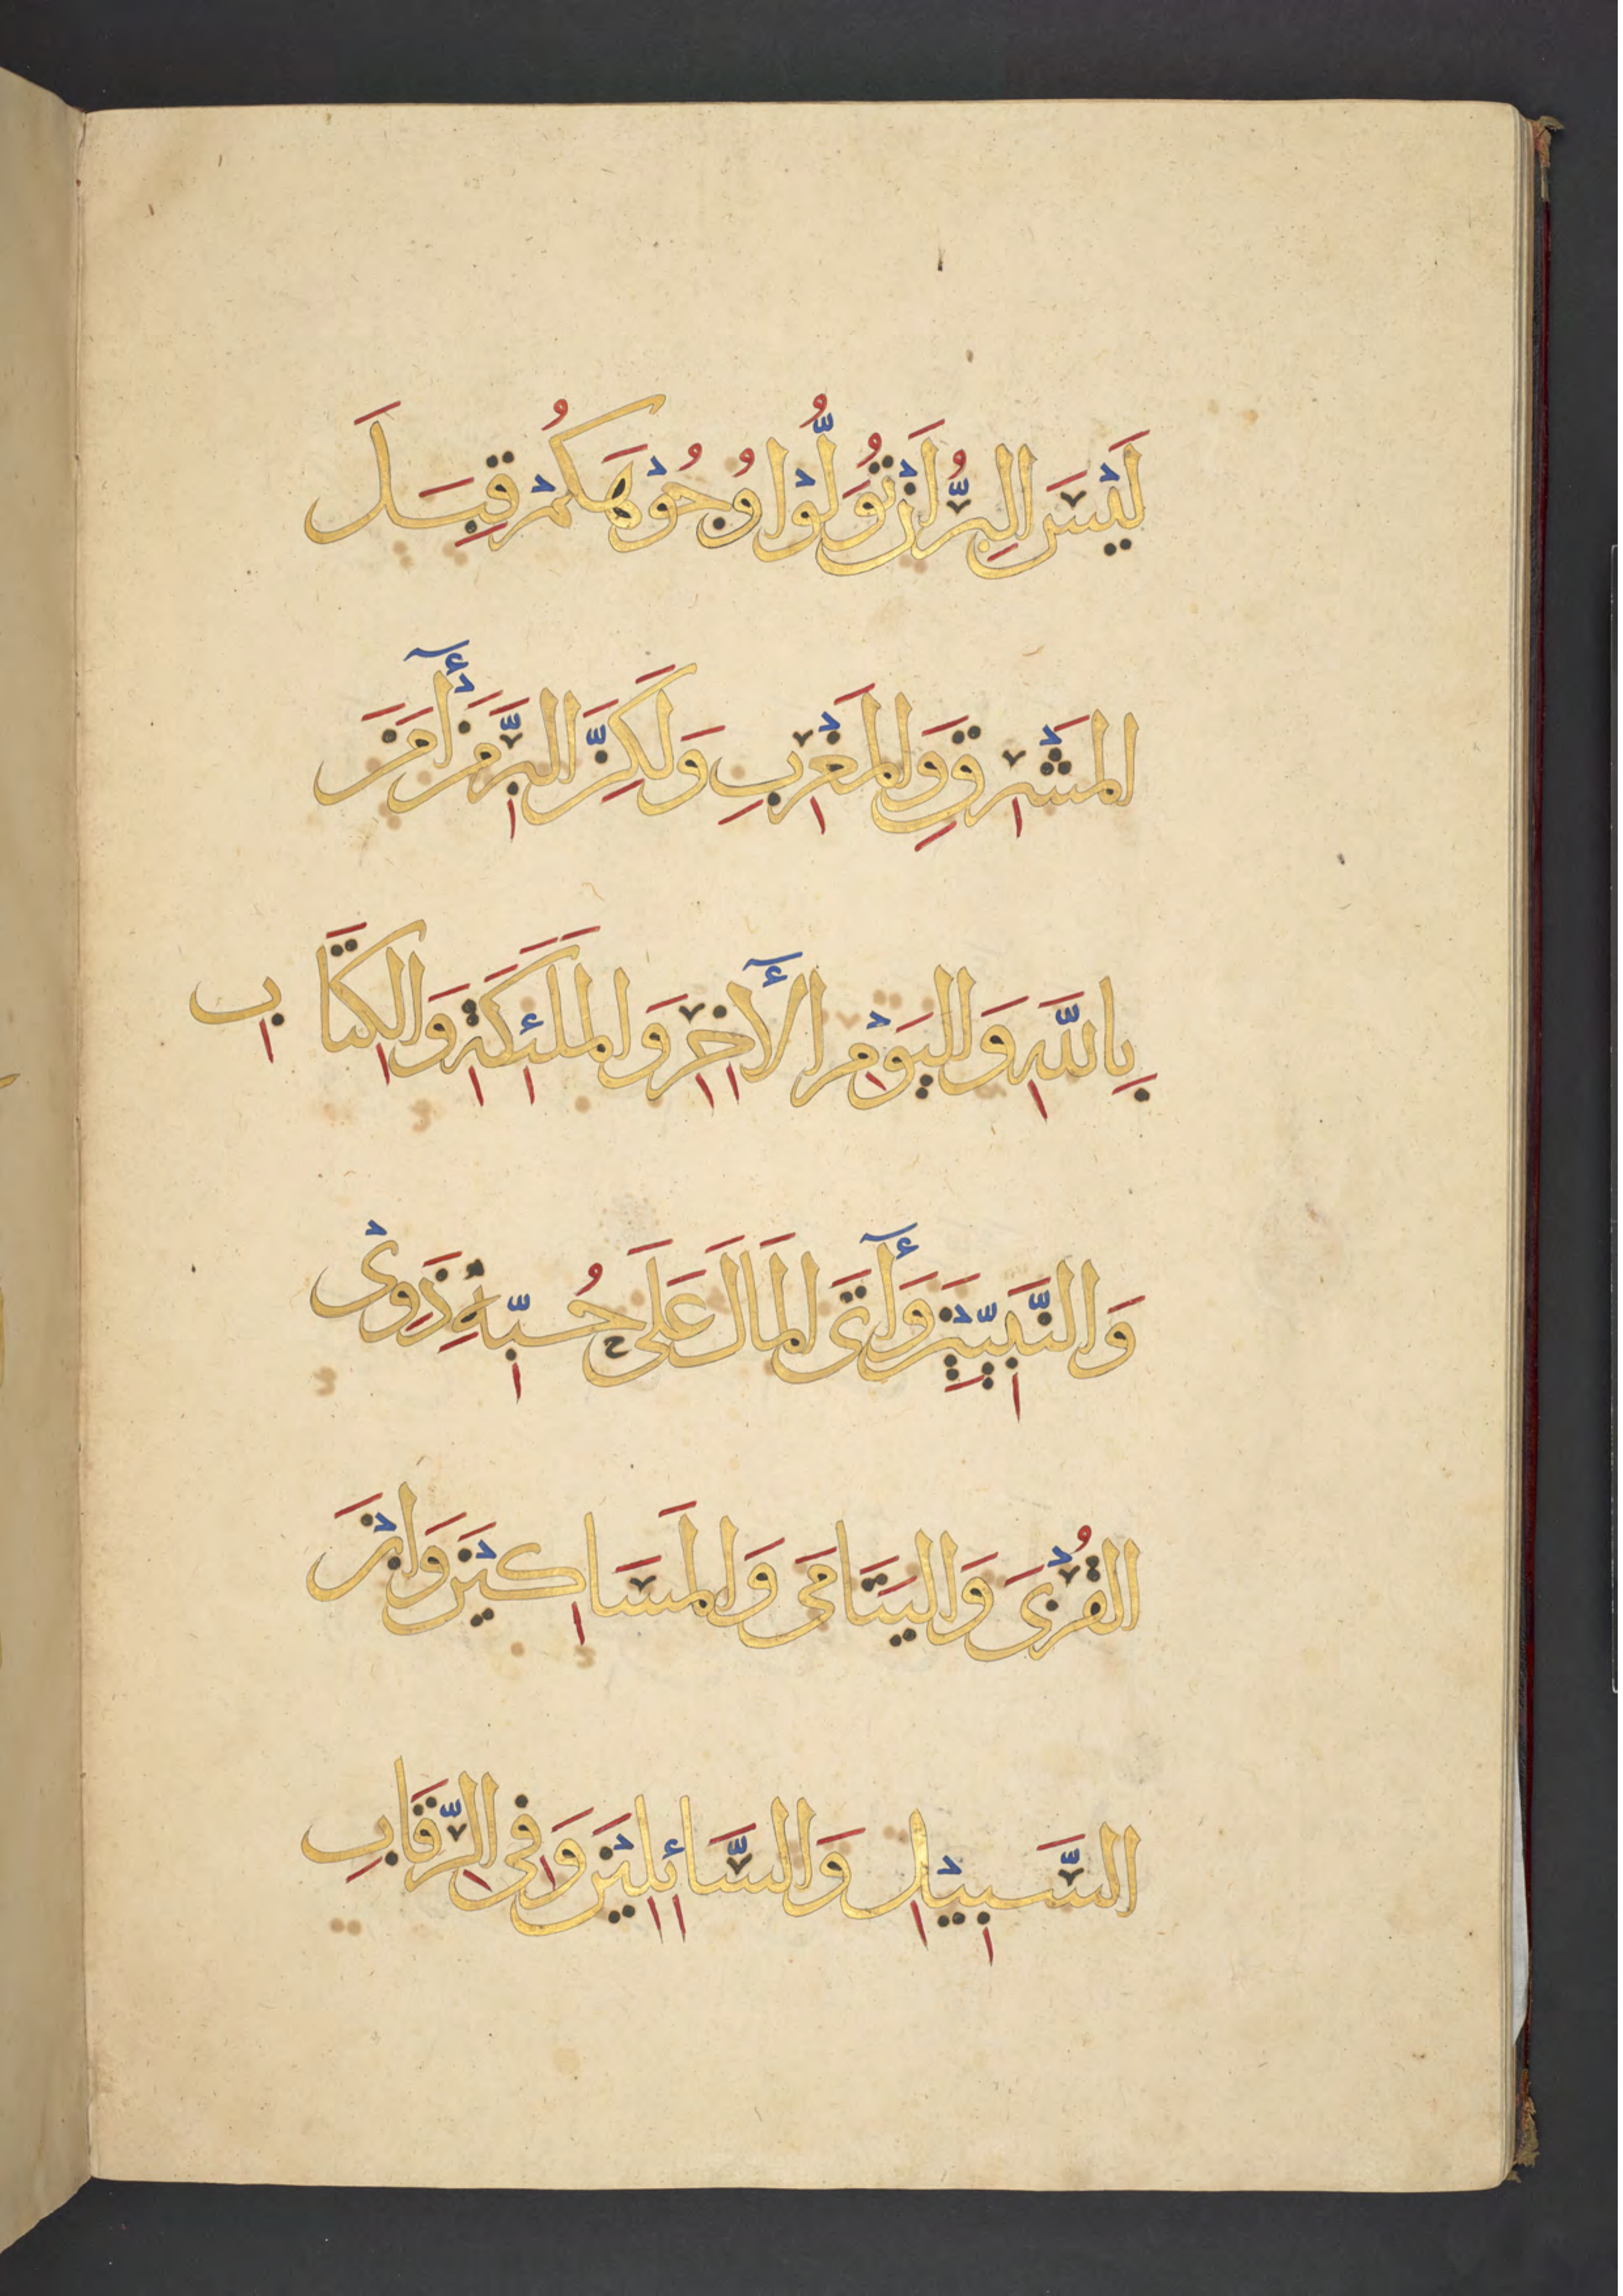 لَيْسَ البِرُّ اَنْ تُوَلُّوْا وُجُوْهَكُمْ قِبَلَ
المَشْرِقِ وَالمَغْرِبِ وَلَكِنَّ البِرَّ مَنْ أٓمَنَ
بِاللّٰهِ وَاليَوْمِ الأٓخِرِ وَالمَلَئِكَةِ وَالكِتَابِ
وَالنَّبِيّيْنَ وَأٓتَى المَالَ عَلَى حُبِّهِ ذَوِىْ
القُرْبَى وَاليَتَامَى وَالمَسَاكِيْنَ وَابْنَ
السَّبِيْلِ وَالسَّائِلِيْنَ وَفِى الرِّقَابِ